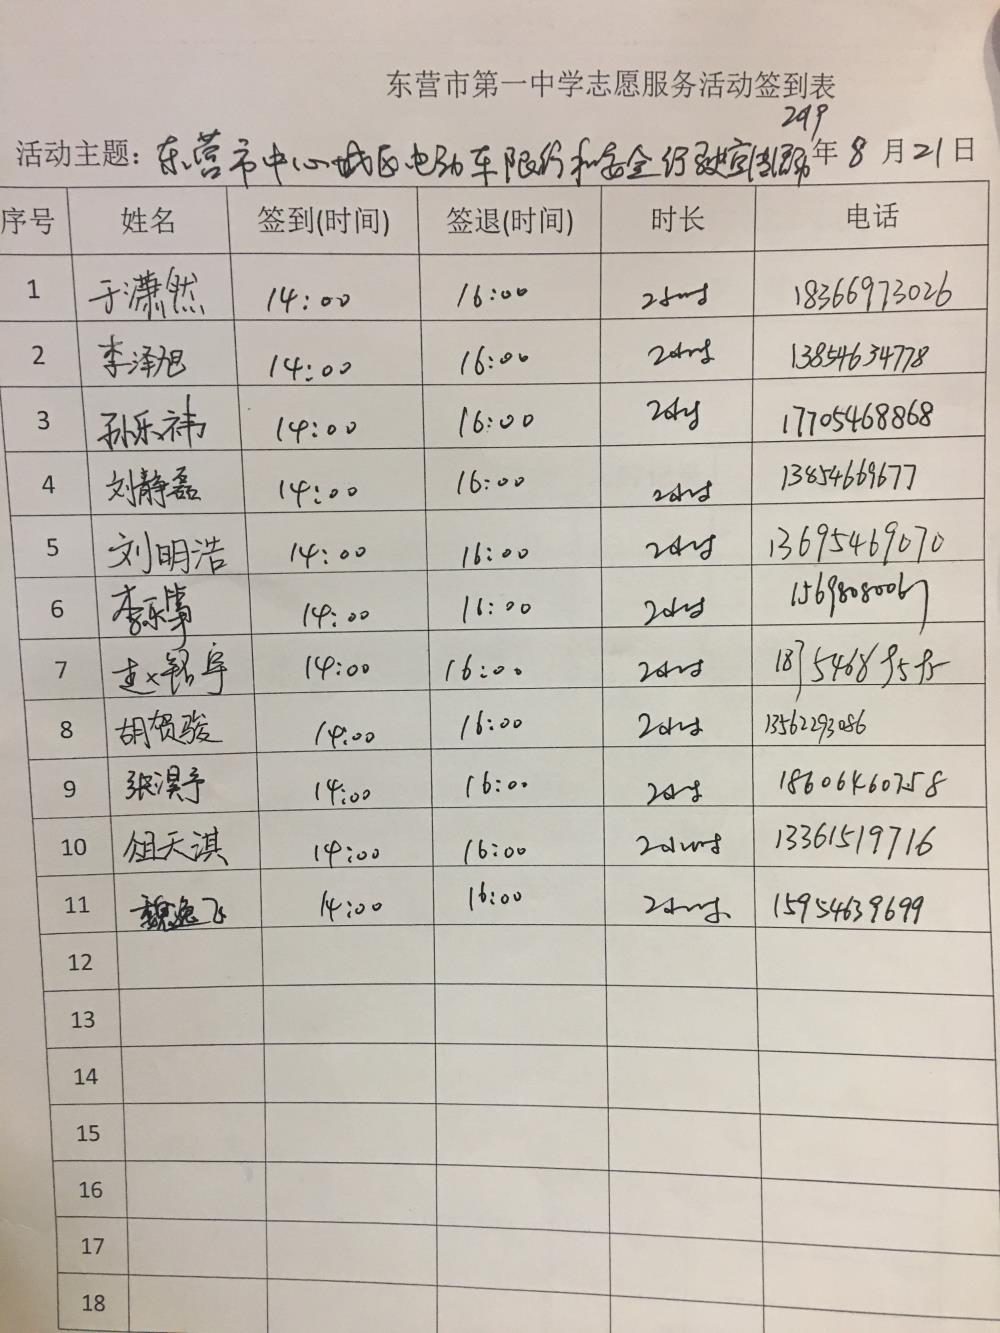 东营市第一中学志愿服务活动签到表
2019
活动主题：东营市中心城区电动车限行和安全行驶宣传活动 年 8 月 21 日
序号 姓名 签到(时间) 签退(时间) 时长 电话
1 于潇然 14:00 16:00 2小时 18366973026
2 李泽旭 14:00 16:00 2小时 13854634778
3 孙乐祎 14:00 16:00 2小时 17705468868
4 刘静磊 14:00 16:00 2小时 13854669677
5 刘明浩 14:00 16:00 2小时 13695469070
6 李乐 14:00 16:00 2小时 15698080067
7 14:00 16:00 2小时
8 胡贺骏 14:00 16:00 2小时 13562293086
9 张淏予 14:00 16:00 2小时 18606460758
10 俎天淇 14:00 16:00 2小时 13361519716
11 魏逸飞 14:00 16:00 2小时 15954639699
12
13
14
15
16
17
18